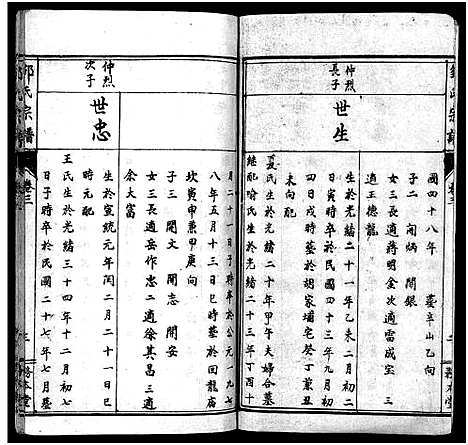 國四十八年 葬辛山乙向
子二 開炳 開銀
女三長適蔣明金次適雷成宝 三
適王德龍
仲烈
長子
世生
生於光緒二十一年乙未二月初二
日寅時卒於民國四十三年九月初
四日戌時墓於胡家墦宅癸丁兼丑
未向配
夏氏生於光緒二十年甲午夫婦合墓
継配喻氏生於光緒二十九年丁酉十
月二十一日子時卒於公元一九七
八年五月十三日巳時墓
坎寅申兼甲庚向
子三 開文 開志 開安
女三長適岳作忠二適徐其昌三適
余大富
仲烈
次子
世忠
生於宣統元年閏二月二十一日
時元配
王氏生於光緒三十四年十二月初七
日子時卒於民國二十七年七月墓
氏宗譜
卷三
三
務本堂